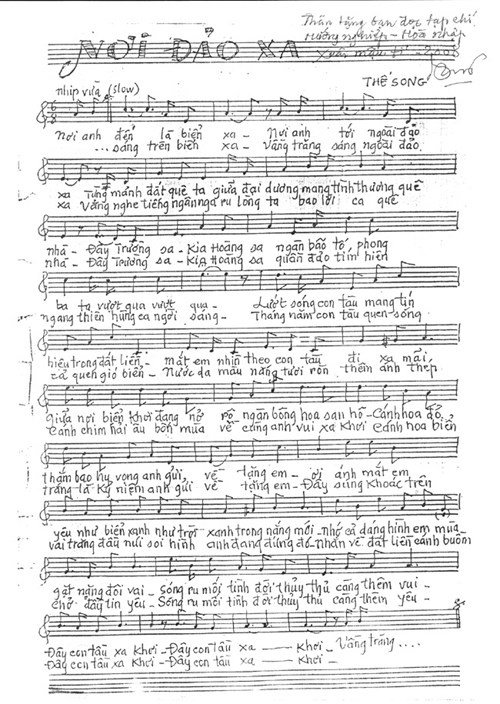 Thân tặng bạn đọc tạp chí
Hướng nghiệp - Hòa nhập
Xuân mậu tí - 2008
NƠI ĐẢO XA
THẾ SONG
nhịp vừa (slow)
Nơi anh đến là biển xa - Nơi anh tới ngoài đảo
... sáng trên biển xa - Vầng trăng sáng ngoài đảo
xa Từng mảnh đất quê ta giữa đại dương mang tình thương quê
xa Vẳng nghe tiếng ngân nga ru lòng ta bao lời ca quê
nhà - Đây Trường Sa - Kia Hoàng Sa ngàn bão tố, phong
nhà - Đây Trường Sa - Kia Hoàng Sa quần đảo tím hiên
ba ta vượt qua vượt qua - Lướt sóng con tàu mang tín
ngang thiên hùng ca ngời sáng - Tháng năm con tàu quen sóng
hiệu trong đất liền - mắt em nhìn theo con tàu đi xa mãi,
cả quen gió biển - Nước da màu nắng tươi ròn thêm ánh thép
Giữa nơi biển khơi đang nở rộ ngàn bông hoa san hô - Cánh hoa đỏ
cánh chim hải âu bốn mùa về cùng anh vui xa khơi cánh hoa biển
thắm bao hy vọng anh gửi về tặng em - ơi ánh mắt em
trắng là kỷ niệm anh gửi về tặng em - Đây súng khoác trên
yêu như biển xanh như trời xanh trong nắng mới - nhớ cả dáng hình em mùa
vai trăng đầu núi soi hình anh đang đứng đó - Nhắn về đất liền cánh buồm
gặt nặng đôi vai - Sóng ru mối tình đời thủy thủ càng thêm vui -
chở đầy tin yêu - Sóng ru mối tình đời thủy thủ càng thêm yêu -
Đây con tàu xa khơi - Đây con tàu xa - khơi - Vầng trăng ....
Đây con tàu xa khơi - Đây con tàu xa - khơi -